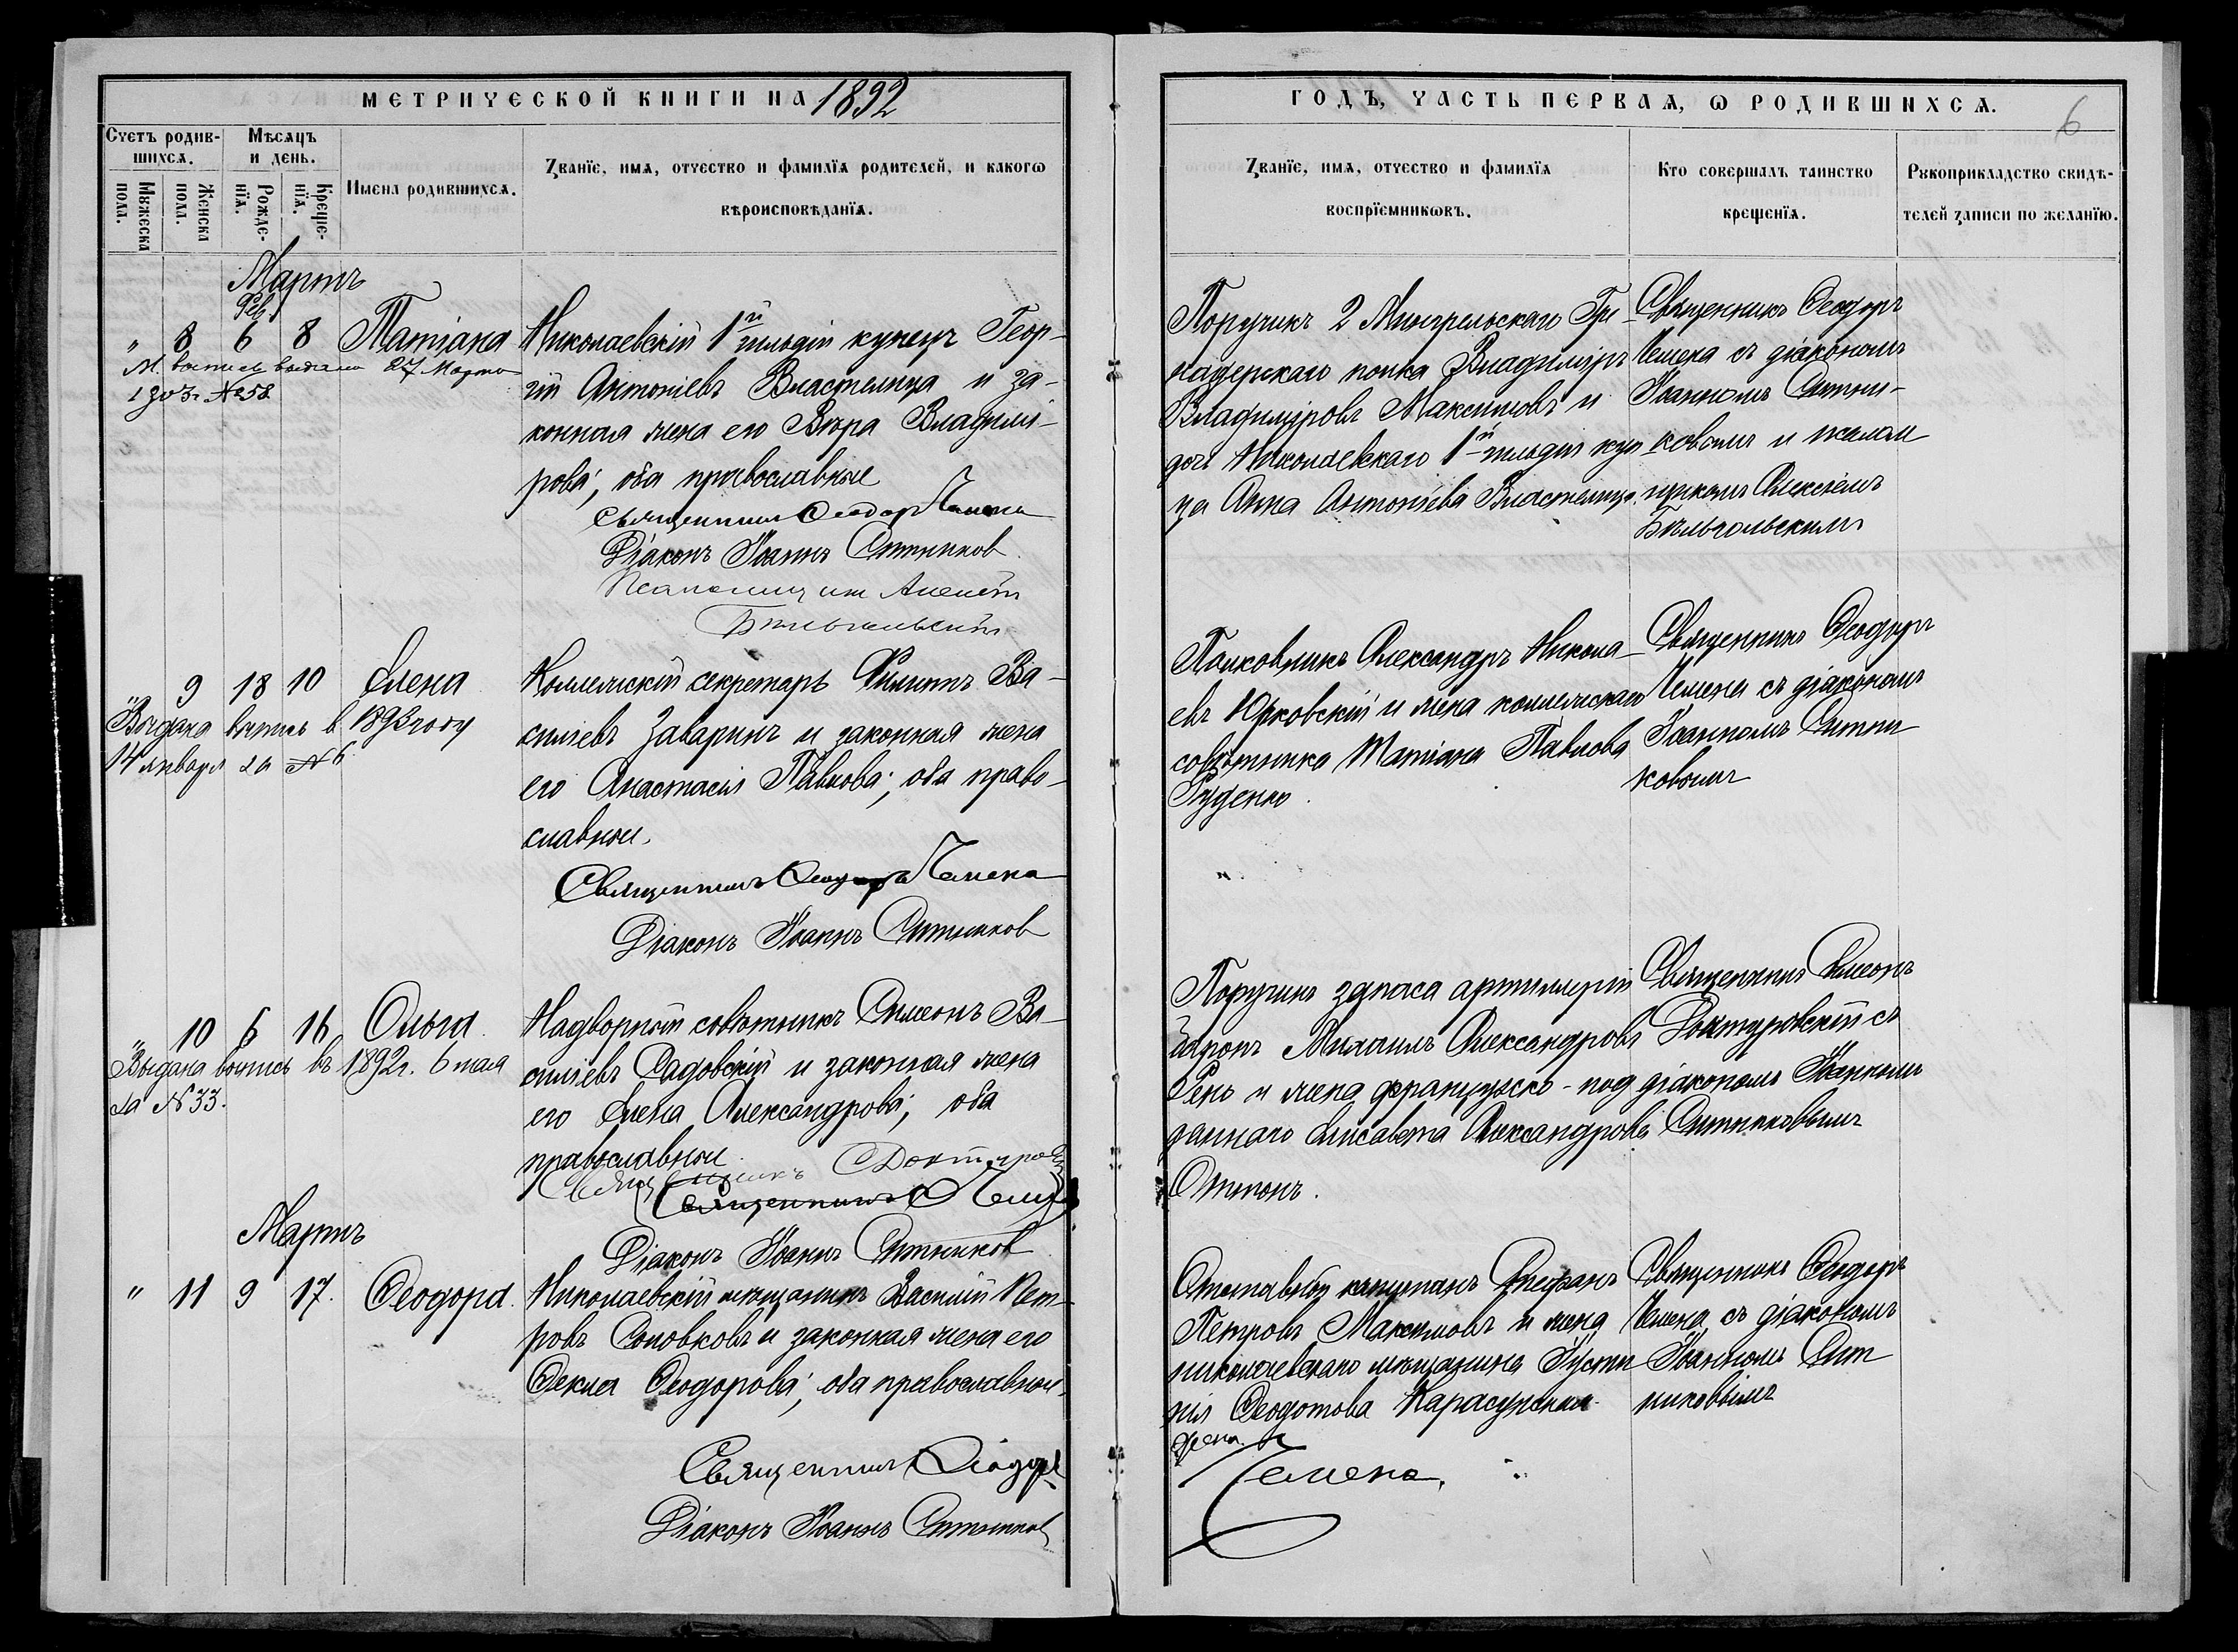 МЕТРИЧЕСКОЙ КНИГИ НА 1892
ГОДЪ, ЧАСТЬ ПЕРВАѦ, Ѡ РОДИВШИХСѦ.
6
Счетъ родив-
шихсѧ.
Мѣсѧцъ
и день.
Мꙋжеска
пола.
Женска
пола.
Рожде-
нїѧ.
Креще-
нїѧ.
Имена родившихсѧ.
Ꙁванїе, имѧ, отчество и фамилїѧ родителей, и какогѡ
вѣроисповѣданїѧ.
Ꙁванїе, имѧ, отчество и фамилїѧ
воспрїемникѡвъ.
Кто совершалъ таинство
крещенїѧ.
Рꙋкоприкладство свидѣ-
телей ꙁаписи по желанїю.
Мартъ
Фев.
" 8 6 8 Татіана
М. выпись выдана 27 Марта
1903 г. № 58
Николаевскій 1й гильдіи купецъ Геор-
гій Антоніевъ Властелица и за-
конная жена его Вѣра Владимі-
рова; оба православные
Священникъ Ѳеодоръ Чемена
Діаконъ Іоаннъ Ситников
Псаломщикъ Алексѣй
Бѣльгольскій
Поручикъ 2 Мингрельскаго Гре-
надерскаго полка Владиміръ
Владиміровъ Максимовъ и
дочь Николаевскаго 1й гильдіи куп-
ца Анна Антоніева Властелица.
Священникъ Ѳеодоръ
Чемена съ діакономъ
Іоанномъ Ситни-
ковымъ и псалом
щикомъ Алексѣемъ
Бѣльгольскимъ
" 9 18 10 Елена
Выдана выпись в 1893 году
14 января за № 6
Коллежскій секретарь Филиппъ Ва-
сильевъ Заваринъ и законная жена
его Анастасія Павлова; оба право-
славные.
Священникъ Ѳеодоръ Чемена
Діаконъ Іоаннъ Ситников
Полковникъ Александръ Никола-
евъ Юрковскій и жена коллежскаго
совѣтника Татіана Павлова
Руденко.
Священникъ Ѳеодоръ
Чемена съ діакономъ
Іоанномъ Ситни
ковымъ
" 10 6 16 Ольга
Выдана выпись въ 1892 г. 6 мая
за № 33.
Надворный совѣтникъ Симеонъ Ва-
сильевъ Садовскій и законная жена
его Елена Александрова; оба
православные.
Священникъ С Доктуров
Священникъ Ѳ Чеме
Діаконъ Іоаннъ Ситников
Поручикъ запаса артиллеріи
баронъ Михаилъ Александровъ
Рено и жена французско-под
даннаго Елисавета Александрова
Оттонъ.
Священникъ Симеонъ
Доктуровскій съ
діакономъ Іоанномъ
Ситниковымъ
Мартъ
" 11 9 17. Ѳеодора.
Николаевскій мѣщанинъ Василій Пет-
ровъ Соловковъ и законная жена его
Ѳекла Ѳеодорова; оба православные.
Священникъ Ѳеодоръ
Діаконъ Іоаннъ Ситников
Отставной капитанъ Стефанъ
Петровъ Максимовъ и жена
николаевскаго мѣщанина Іусти
нія Ѳеодотова Карасунская.
Чемена.
Священникъ Ѳеодоръ
Чемена съ діакономъ
Іоанномъ Сит
никовымъ